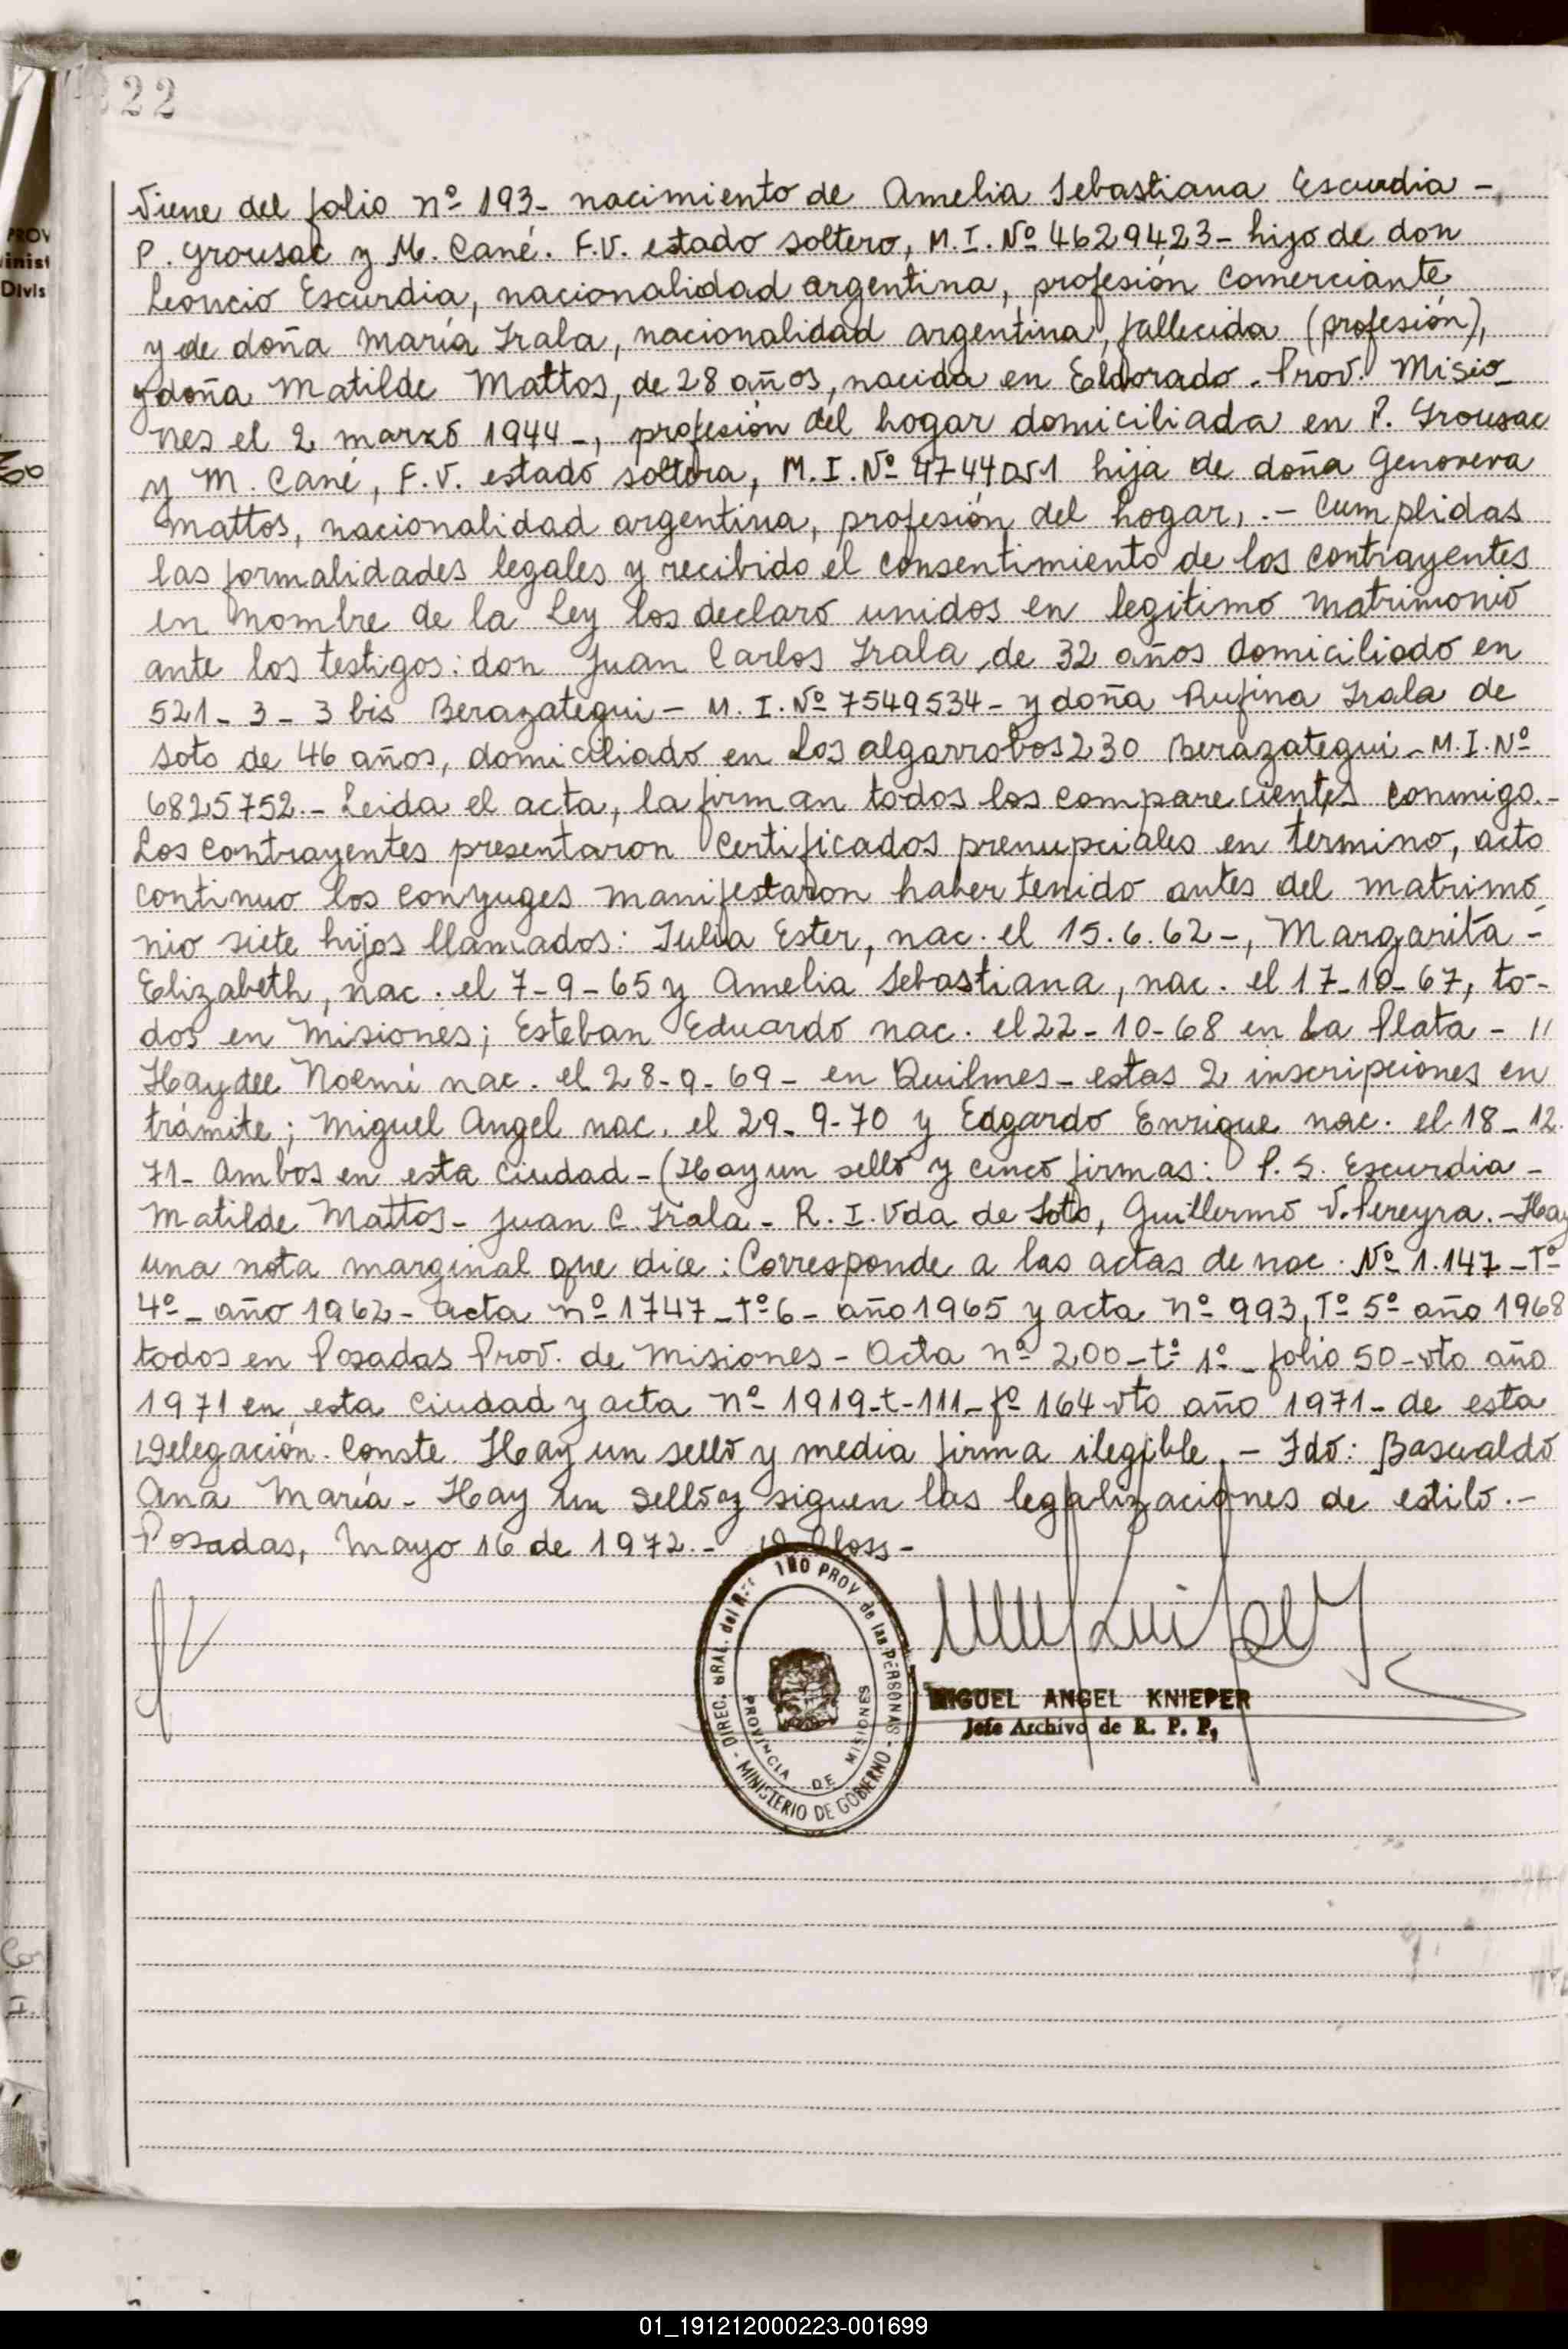 22
Viene del folio nº 193- nacimiento de Amelia Sebastiana Escurdia -
P. Grousac y M. Cané. F.V. estado soltero, M.I. Nº 4629423- hijo de don
Leoncio Escurdia, nacionalidad argentina, profesión comerciante
y de doña María Irala, nacionalidad argentina, fallecida (profesión),
y doña Matilde Mattos, de 28 años, nacida en Eldorado. Prov. Misio-
nes el 2 marzo 1944-, profesión del hogar domiciliada en P. Grousac
y M. Cané, F.V. estado soltera, M.I. Nº hija de doña Genoveva
Mattos, nacionalidad argentina, profesión del hogar, .- Cumplidas
las formalidades legales y recibido el consentimiento de los contrayentes
en nombre de la Ley los declaro unidos en legitimo matrimonio
ante los testigos: don Juan Carlos Irala, de 32 años domiciliado en
521- 3- 3 bis Berazategui- M.I. Nº 7549534- y doña Rufina Irala de
Soto de 46 años, domiciliado en Los algarrobos 230 Berazategui- M.I. Nº
6825752.- Leida el acta, la firman todos los comparecientes conmigo.-
Los contrayentes presentaron certificados prenupciales en termino, acto
continuo los conyuges manifestaron haber tenido antes del matrimo-
nio siete hijos llamados: Julia Ester, nac. el 15.6.62-, Margarita -
Elizabeth, nac. el 7-9-65 y Amelia Sebastiana, nac. el 17-10-67, to-
dos en Misiones; Esteban Eduardo nac. el 22-10-68 en La Plata - "
Haydee Noemi nac. el 28-9-69- en Quilmes- estas 2 inscripciones en
trámite; Miguel Angel nac. el 29-9-70 y Edgardo Enrique nac. el 18-12.
71- Ambos en esta ciudad- (Hay un sello y cinco firmas: P.S. Escurdia -
Matilde Mattos- Juan C. Irala- R. I. Vda de Soto, Guillermo V. Pereyra.- Hay
una nota marginal que dice: Corresponde a las actas de nac. Nº 1.147-Tº
4º- año 1962- acta nº 1747-tº 6- año 1965 y acta nº 993, Tº 5º año 1968
todos en Posadas Prov. de Misiones- Acta nº 200-tº 1º- folio 50-vto año
1971 en esta ciudad y acta nº 1919-t-111-fº 164 vto año 1971- de esta
Delegación. Conste. Hay un sello y media firma ilegible.- Fdo: Basualdo
Ana María- Hay un sello y siguen las legalizaciones de estilo.-
Posadas, Mayo 16 de 1972.-
DIREC. GRAL. del PROV de las PERSONAS - MINISTERIO DE GOBIERNO -
PROVINCIA DE MISIONES
MIGUEL ANGEL KNIEPER
Jefe Archivo de R. P. P,
01_191212000223-001699